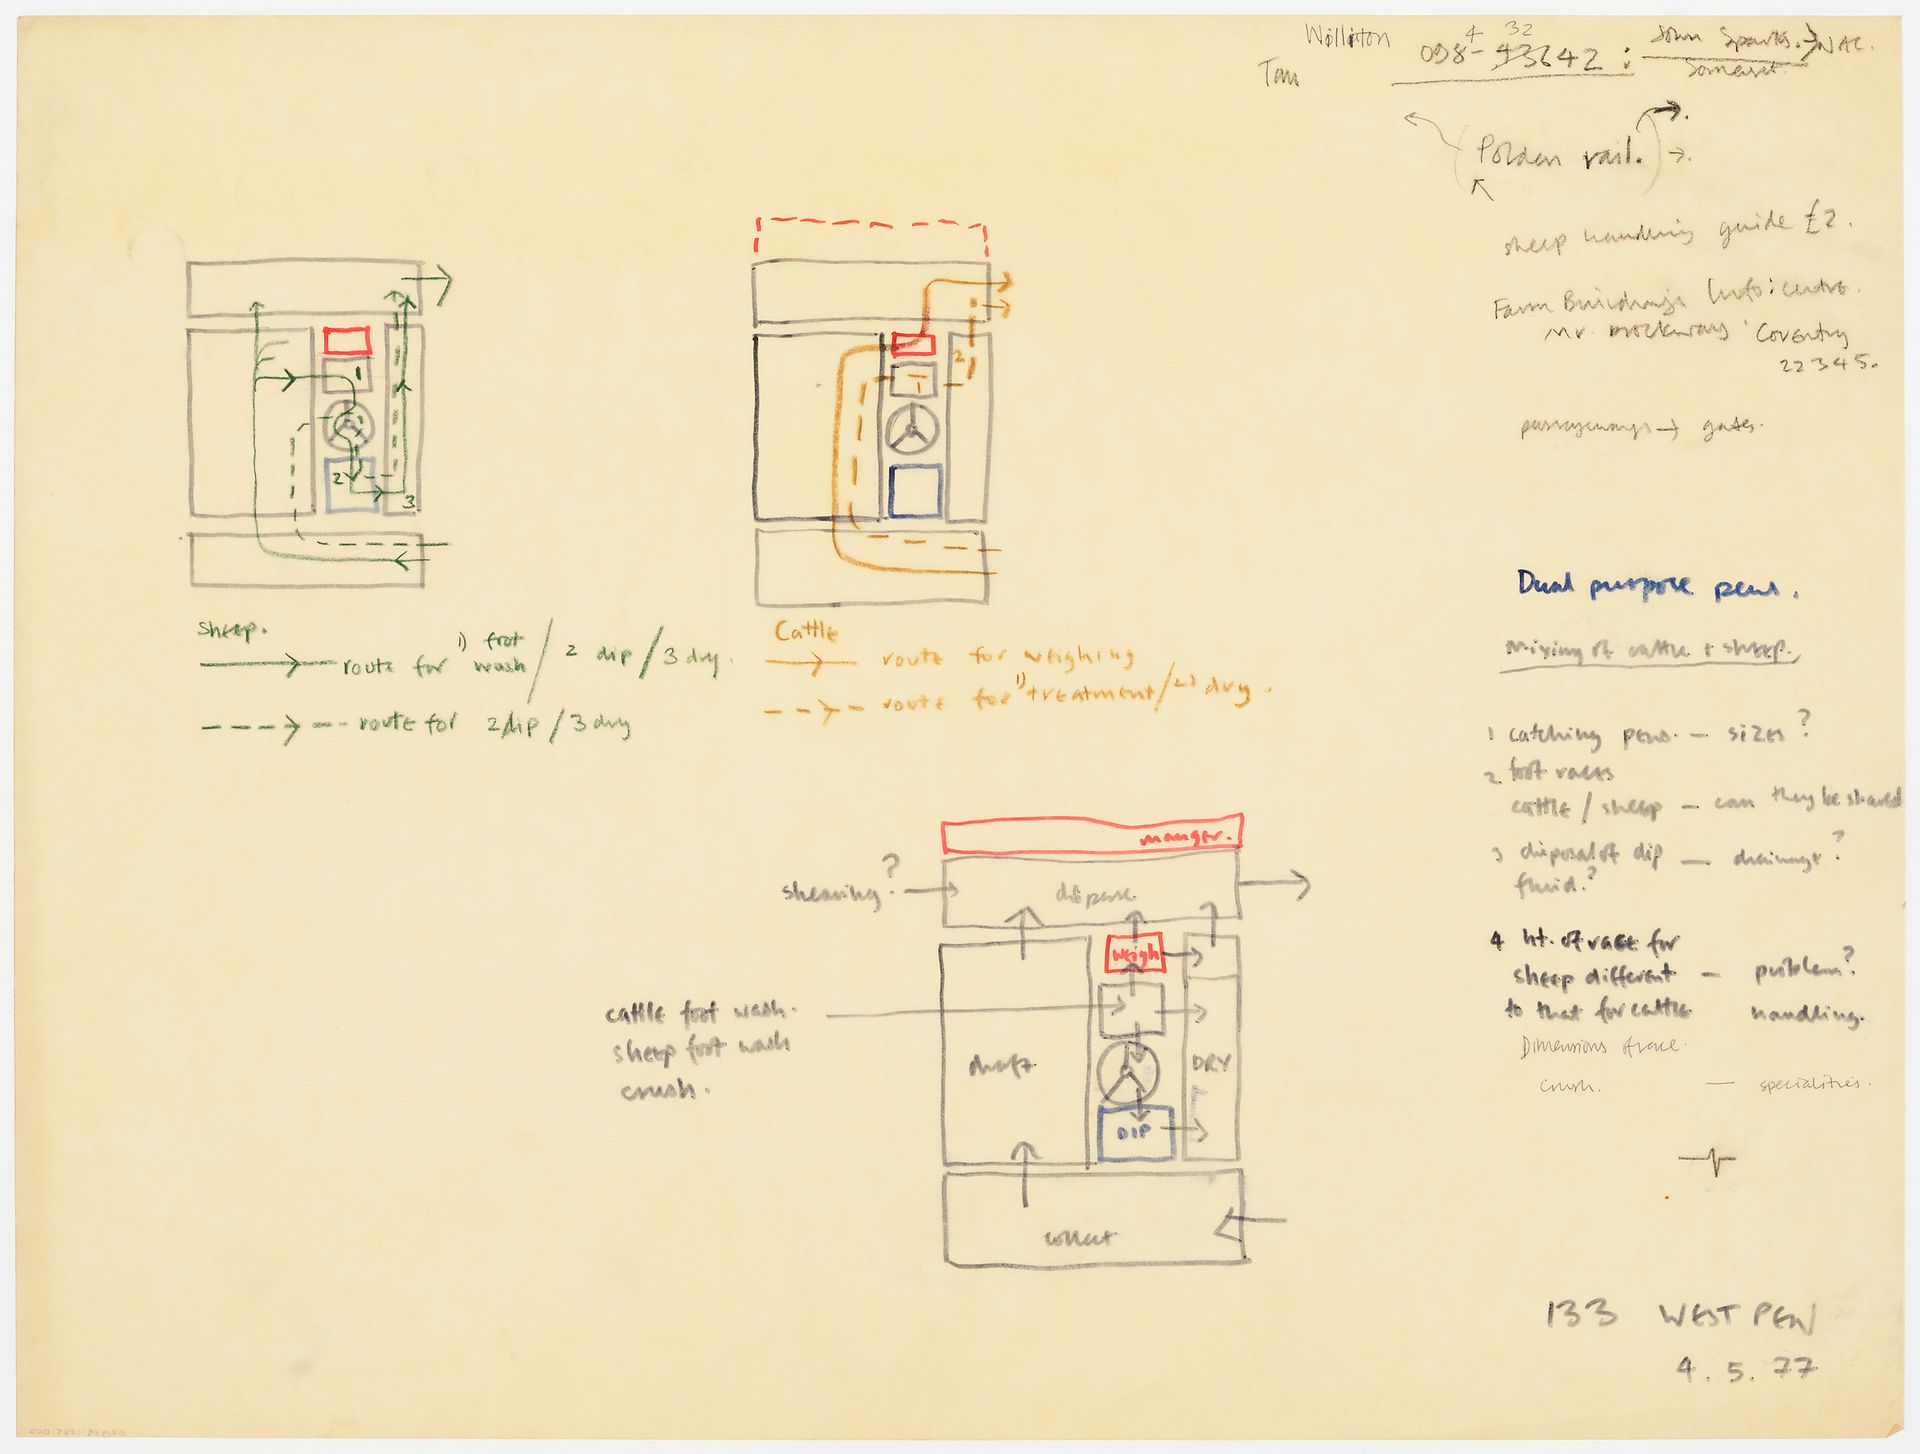 4 32
098-43642 : John Sparks. → NAC.
Tau
Somerset
Polden rail.
sheep handling guide £2.
Farm Buildings Info: centre.
Mr. Brockway Coventry
22345.
passageways → gates.
1
2
3
2
1
sheep.
route for 1) foot wash / 2 dip / 3 dry.
route for 2 dip / 3 dry
Cattle
route for weighing
route for 1) treatment / 2) dry.
Dual purpose pens.
mixing of cattle + sheep.
1 catching pens. — sizes?
2 foot races
cattle / sheep — can they be shared
3 disposal of dip — drainage?
fluid?
4 ht. of race for
sheep different — problem?
to that for cattle handling.
Dimensions of race.
crush. — specialities.
manger.
shearing?
disperse
weigh
cattle foot wash.
sheep foot wash
crush.
draft
DRY
DIP
collect
133 WEST PEN
4.5.77